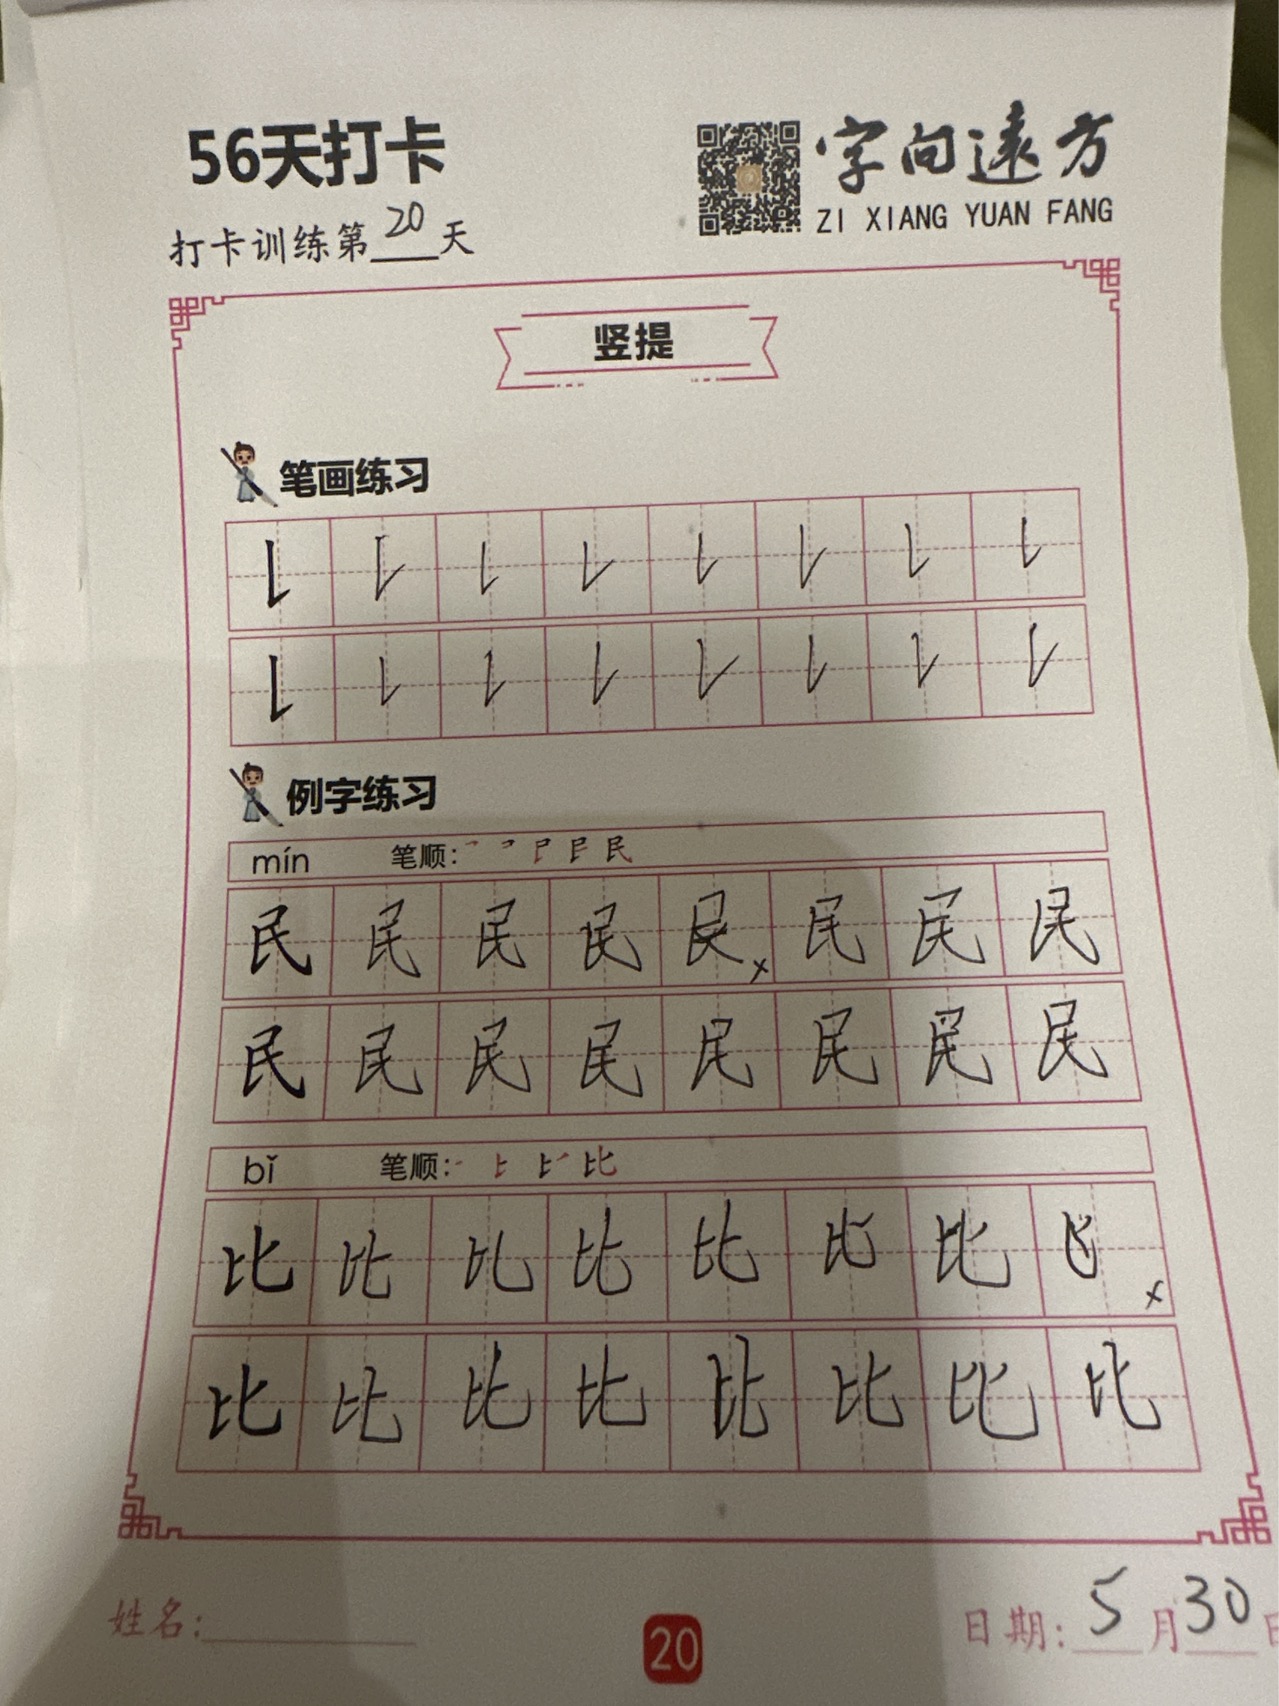 56天打卡
字向遠方
ZI XIANG YUAN FANG
打卡训练第20天
竖提
笔画练习
例字练习
mín 笔顺:
民民民民民民民民
民民民民民民民民
bǐ 笔顺:
比比比比比比比
比比比比比比比比
姓名:
20
日期:5月30日